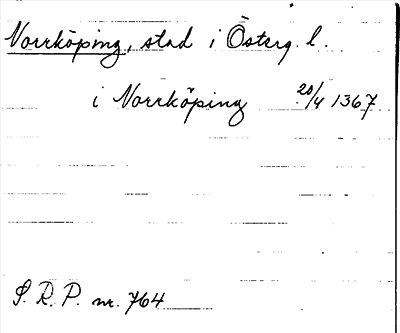 Norrköping, stad i Österg. l.
i Norrköping 20/4 1367
S. R. P. nr. 764